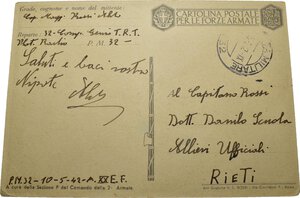 Grado, cognome e nome del mittente:
CARTOLINA POSTALE
PER LE FORZE ARMATE
Cap. Magg. Rossi Aldo
Reparto: 32- Comp. Genio T.R.T.
Plot. Radio P.M. 32-
Saluti e baci vostro
Nipote
Aldo
Al Capitano Rossi
Dott. Danilo Scuola
Allievi Ufficiali
RIETI
P.M. 32-10-5-42-A. XX E.F.
A cura della Sezione P del Comando della 2ª Armata